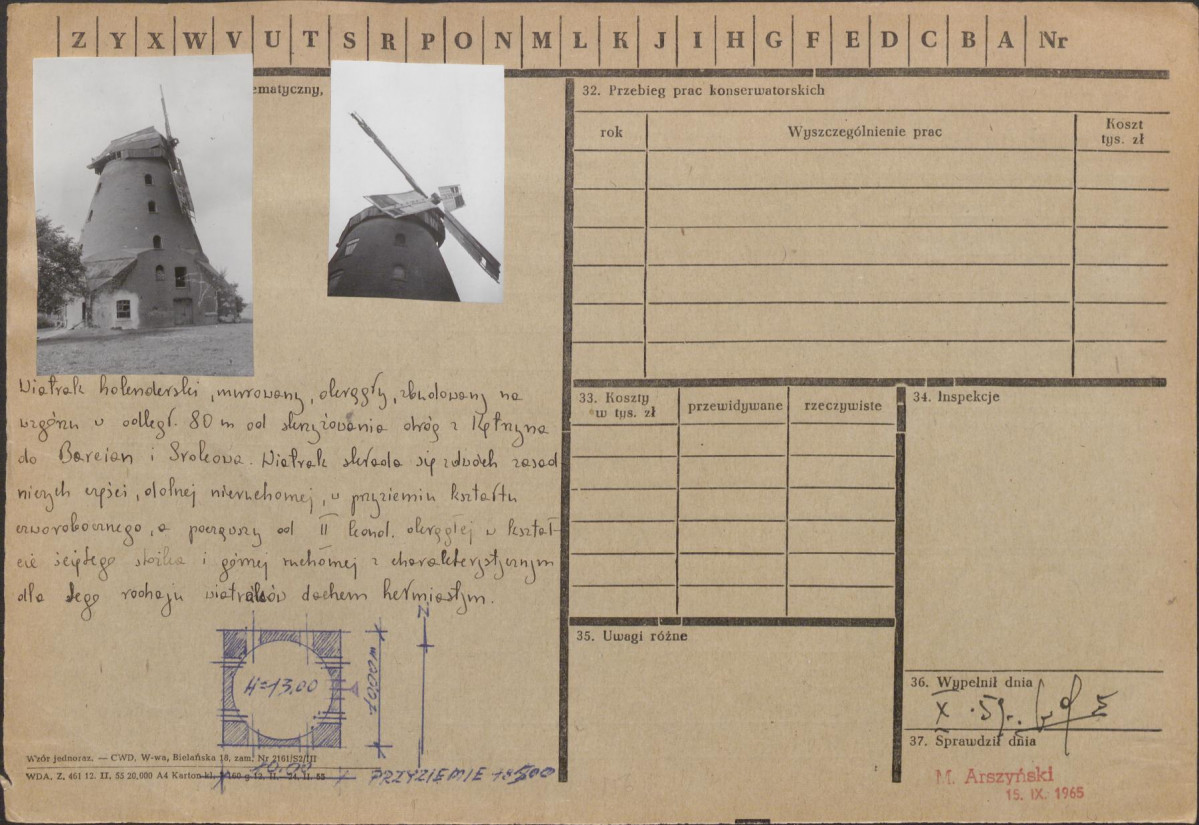 Z Y X W V U T S R P O N M L K J I H G F E D C B A Nr
ematyczny,
32. Przebieg prac konserwatorskich
rok
Wyszczególnienie prac
Koszt
tys. zł
Wiatrak holenderski, murowany, okrągły, zbudowany na
wzgórzu w odległ. 80 m od skrzyżowania dróg z Kętrzyna
do Barcian i Srokowa. Wiatrak składa się z dwóch zasad
niczych części, dolnej nieruchomej, w przyziemiu kształtu
czworobocznego, a począwszy od II kond. okrągłej w kształ-
cie ściętego stożka i górnej ruchomej z charakterystycznym
dla tego rodzaju wiatraków dachem hełmiastym.
33. Koszty
w tys. zł
przewidywane
rzeczywiste
34. Inspekcje
35. Uwagi różne
36. Wypełnił dnia
X . 59 r.
37. Sprawdził dnia
M. Arszyński
15. IX. 1965
H=13,00
N
Wzór jednoraz. — CWD, W-wa, Bielańska 18, zam. Nr 2161/S2/III
WDA, Z, 461 12. II, 55 20,000 A4 Karton kl.
PRZYZIEMIE